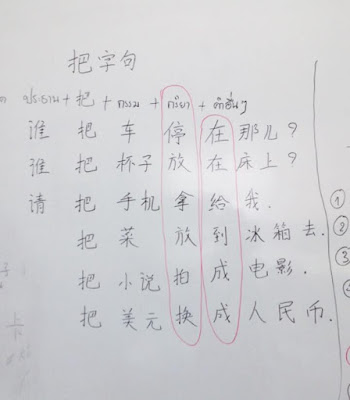 把字句
ประธาน + 把 + กรรม + กริยา + คำอื่นๆ
谁 把 车 停 在 那儿?
谁 把 杯子 放 在 床上?
请 把 手机 拿 给 我.
把 菜 放 到 冰箱 去.
把 小说 拍 成 电影.
把 美元 换 成 人民币.
①
②
③